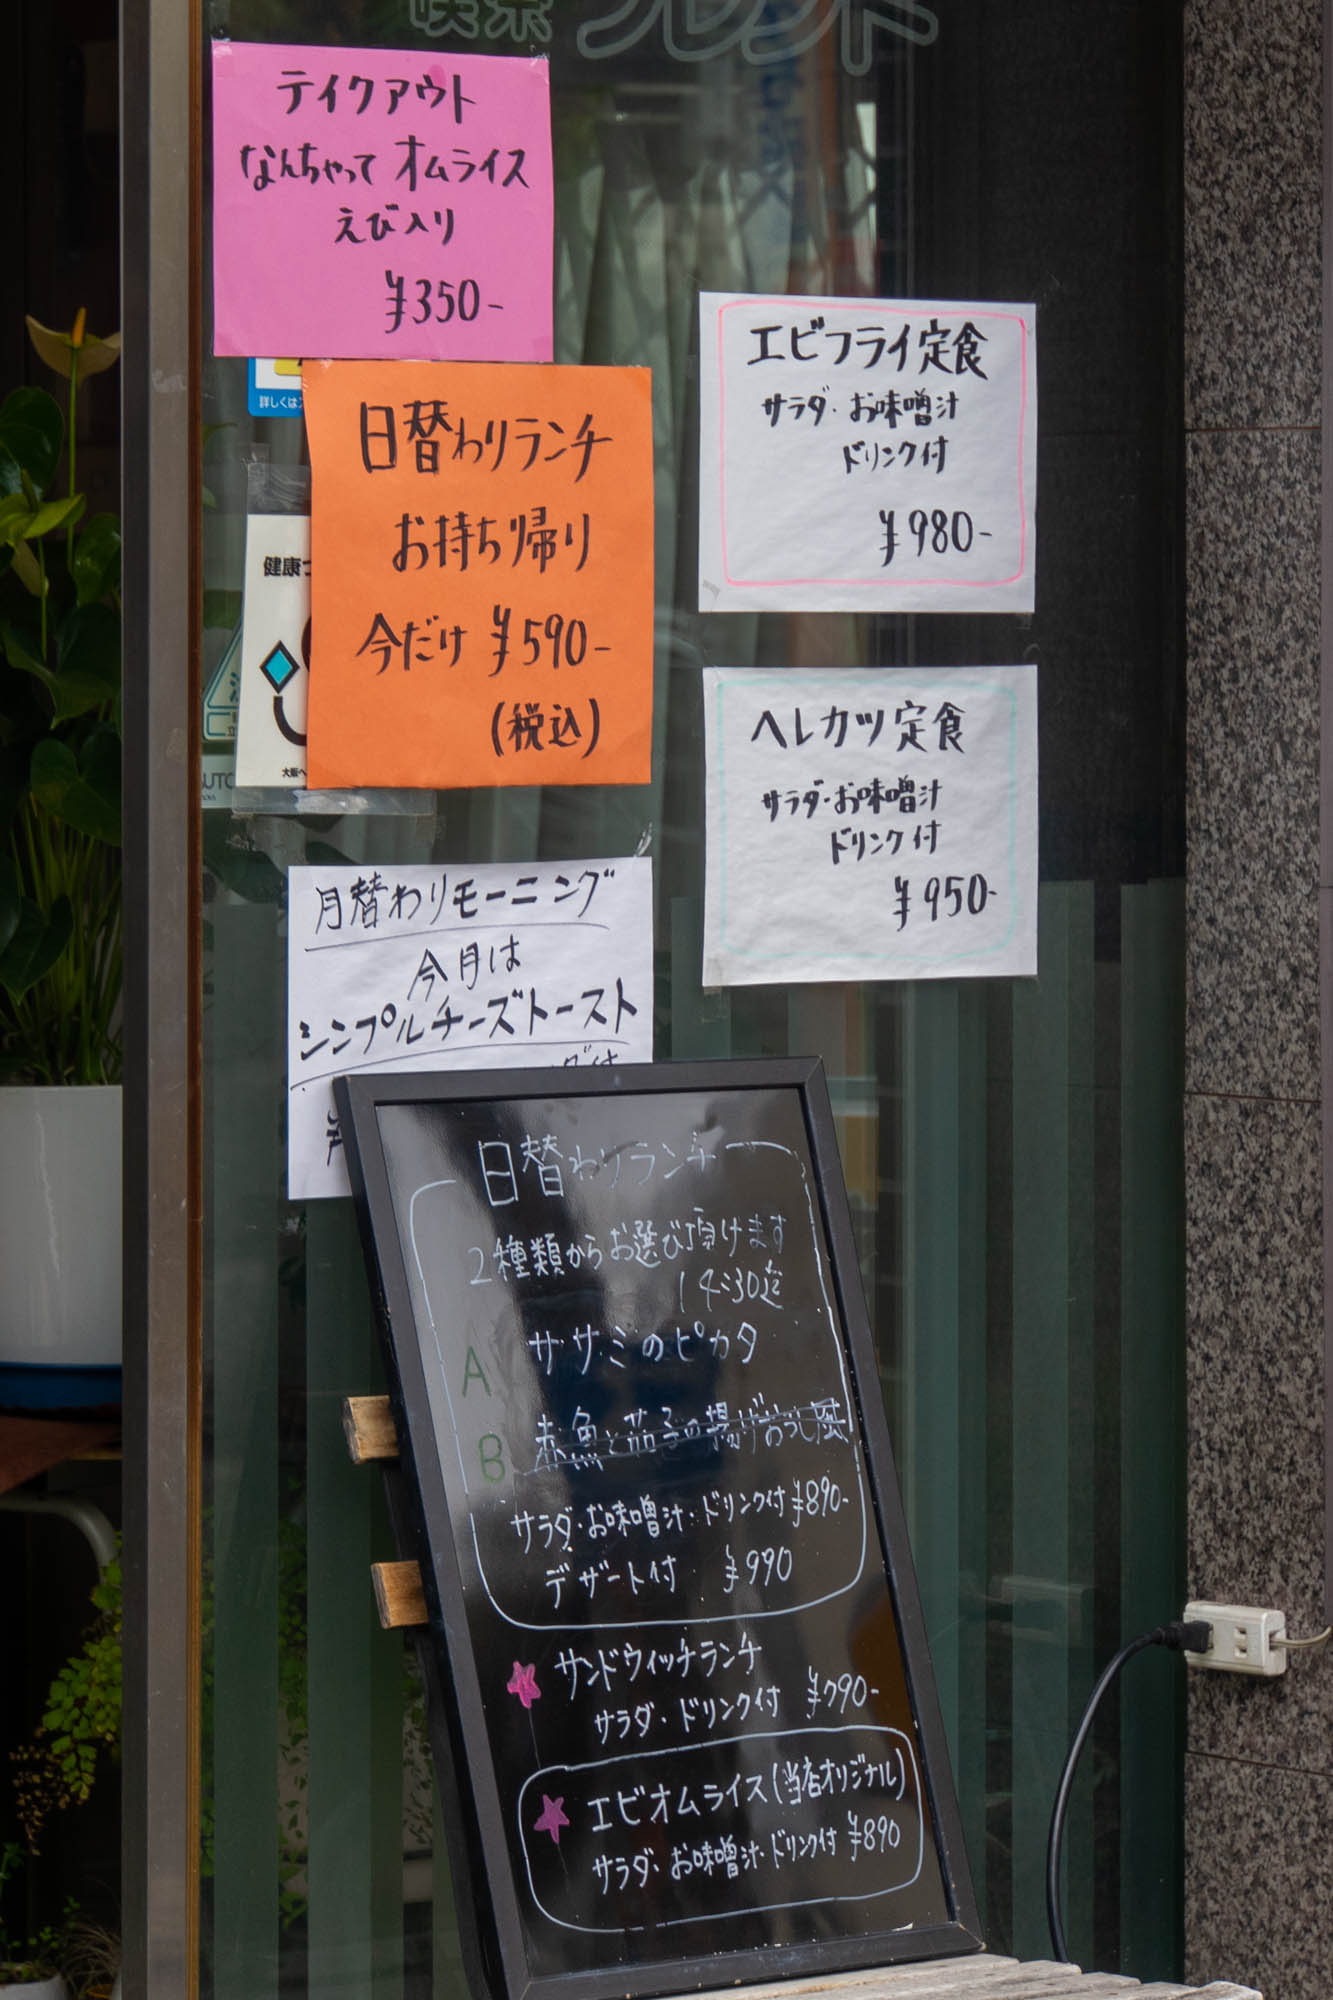 喫茶 フレンド
テイクアウト
なんちゃって オムライス
えび入り
¥350-
詳しくは
日替わりランチ
お持ち帰り
今だけ ¥590-
(税込)
健康
大阪
エビフライ定食
サラダ・お味噌汁
ドリンク付
¥980-
ヘレカツ定食
サラダ・お味噌汁
ドリンク付
¥950-
月替わりモーニング
今月は
シンプルチーズトースト
日替わりランチ
2種類からお選び頂けます
14:30迄
A ササミのピカタ
B 赤魚と茄子の揚げおろし風
サラダ・お味噌汁・ドリンク付 ¥890-
デザート付 ¥990
サンドウィッチランチ
サラダ・ドリンク付 ¥790-
エビオムライス(当店オリジナル)
サラダ・お味噌汁・ドリンク付 ¥890